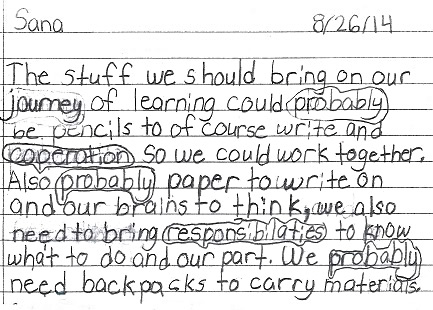 Sana 8/26/14
The stuff we should bring on our
journey of learning could probably
be pencils to of course write and
caperation so we could work together.
Also probably paper to write on
and our brains to think, we also
need to bring responsibilaties to know
what to do and our part. We probably
need backpacks to carry materials.